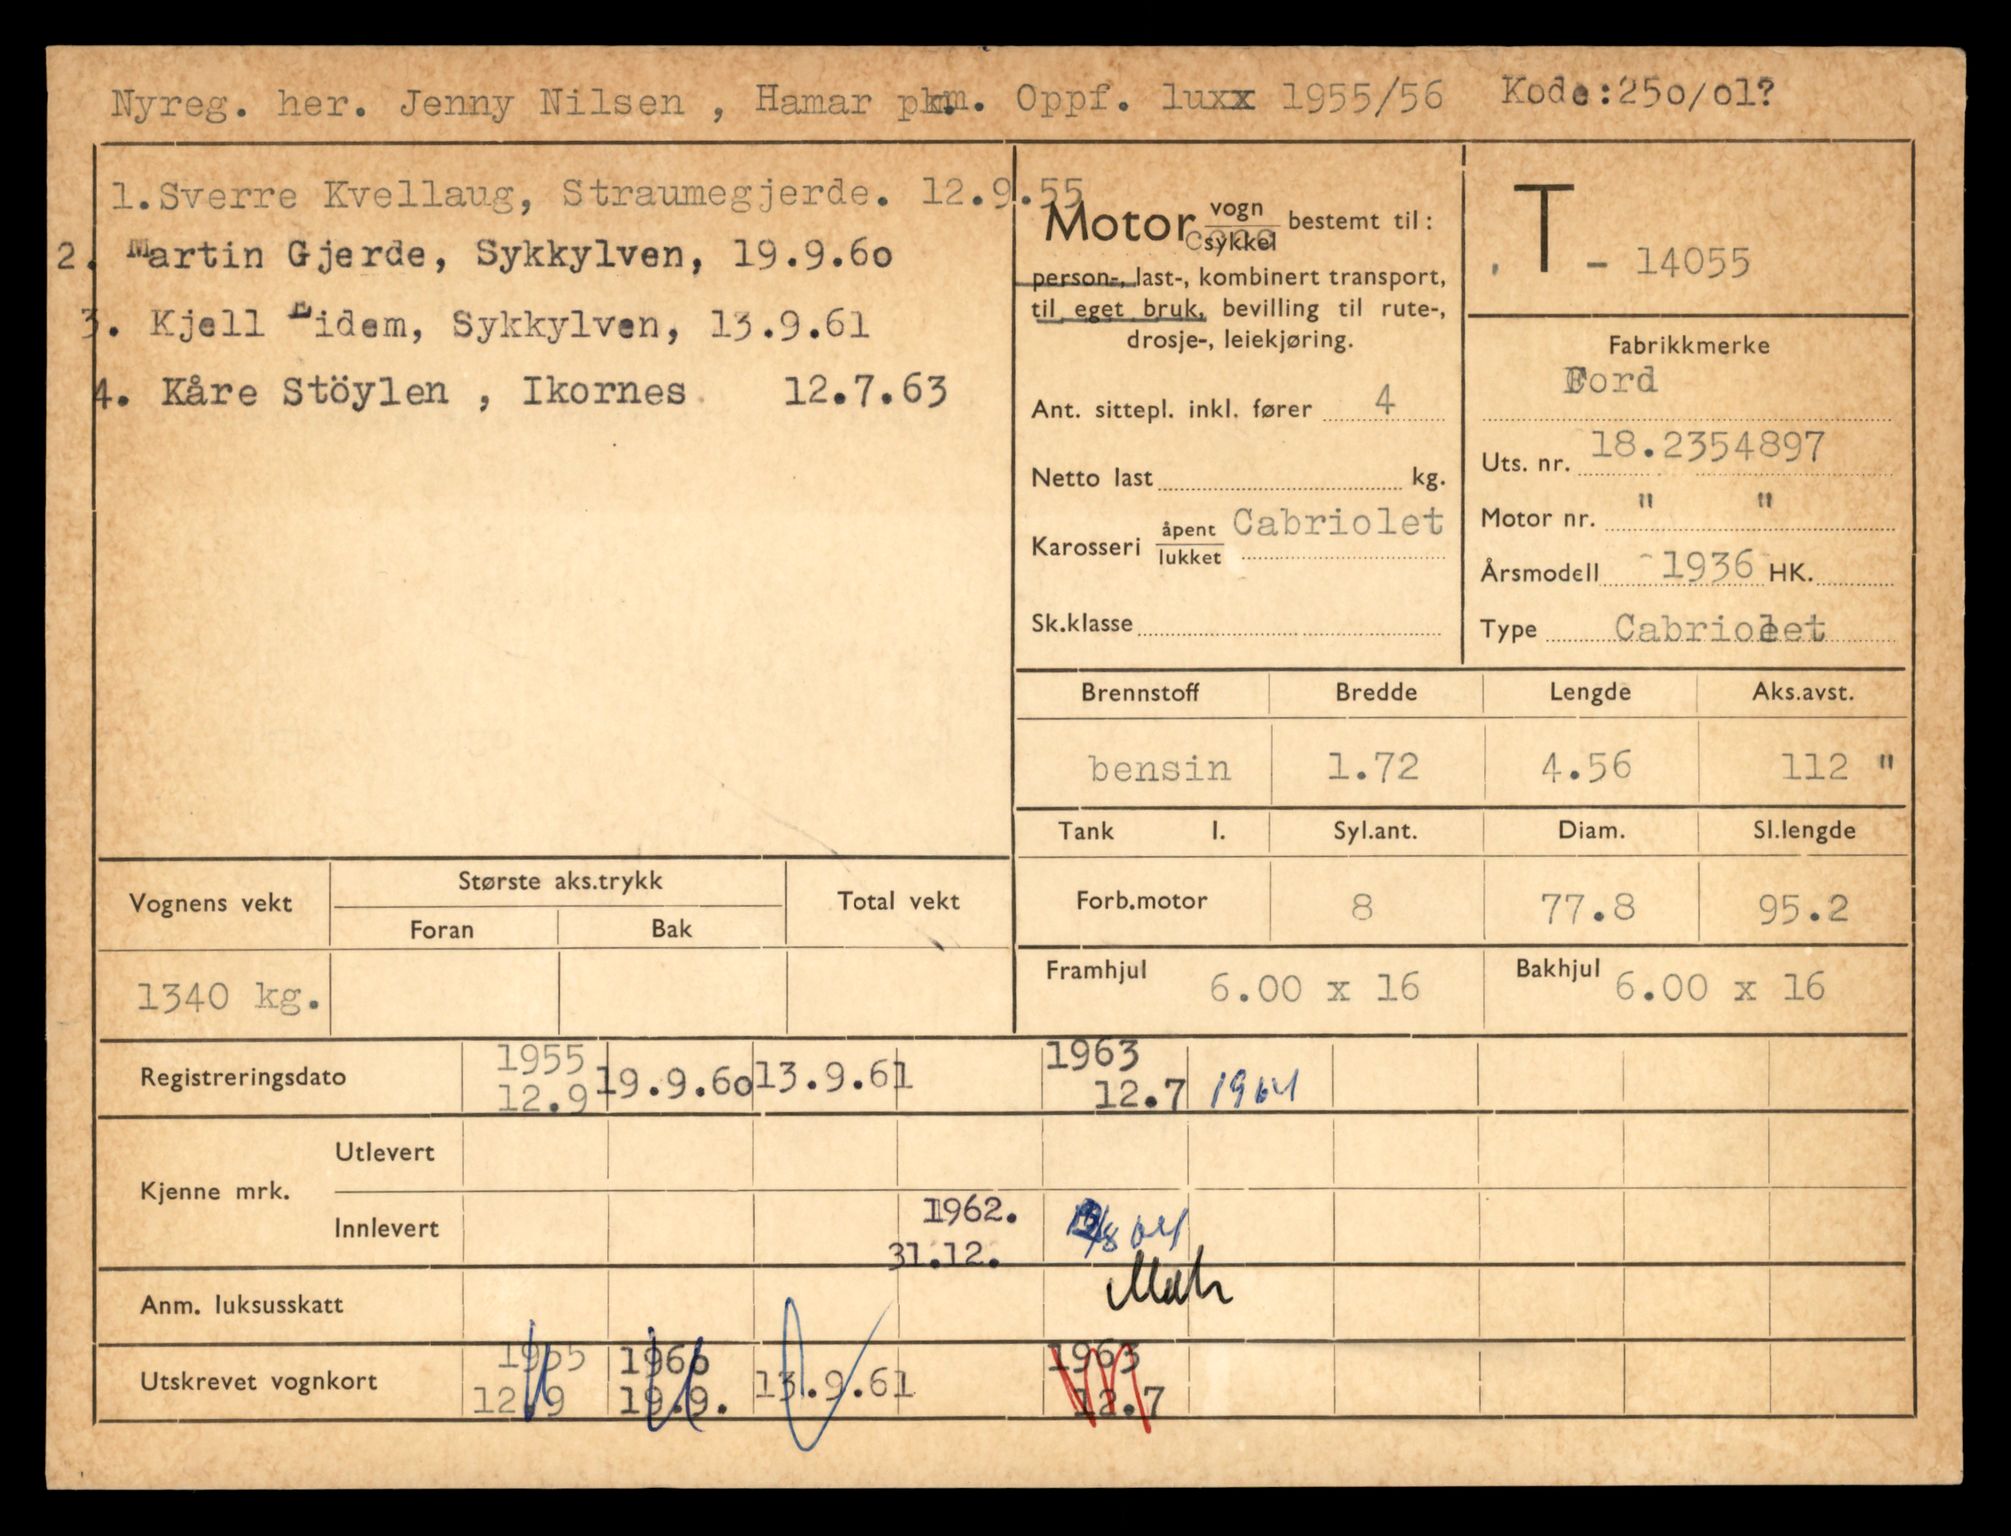 Nyreg. her. Jenny Nilsen , Hamar pkm. Oppf. luxx 1955/56 Kode:25o/o1?
1.Sverre Kvellaug, Straumegjerde. 12.9.55
2. Martin Gjerde, Sykkylven, 19.9.6o
3. Kjell Eidem, Sykkylven, 13.9.61
4. Kåre Stöylen , Ikornes 12.7.63
Motor vogn/sykkel bestemt til:
person-, last-, kombinert transport,
til eget bruk, bevilling til rute-,
drosje-, leiekjøring.
Ant. sittepl. inkl. fører 4
Netto last kg.
Karosseri åpent/lukket Cabriolet
Sk.klasse
T - 14055
Fabrikkmerke
Ford
Uts. nr. 18.2354897
Motor nr. " "
Årsmodell 1936 HK.
Type Cabriolet
Brennstoff Bredde Lengde Aks.avst.
bensin 1.72 4.56 112 "
Tank l. Syl.ant. Diam. Sl.lengde
Forb.motor 8 77.8 95.2
Framhjul 6.00 x 16 Bakhjul 6.00 x 16
Vognens vekt Største aks.trykk Total vekt
Foran Bak
1340 kg.
Registreringsdato 1955 12.9 19.9.6o 13.9.61 1963 12.7 1964
Kjenne mrk. Utlevert
Innlevert 1962. 31.12. /8 64
Anm. luksusskatt
Utskrevet vognkort 1955 12.9 1960 19.9. 13.9.61 1963 12.7